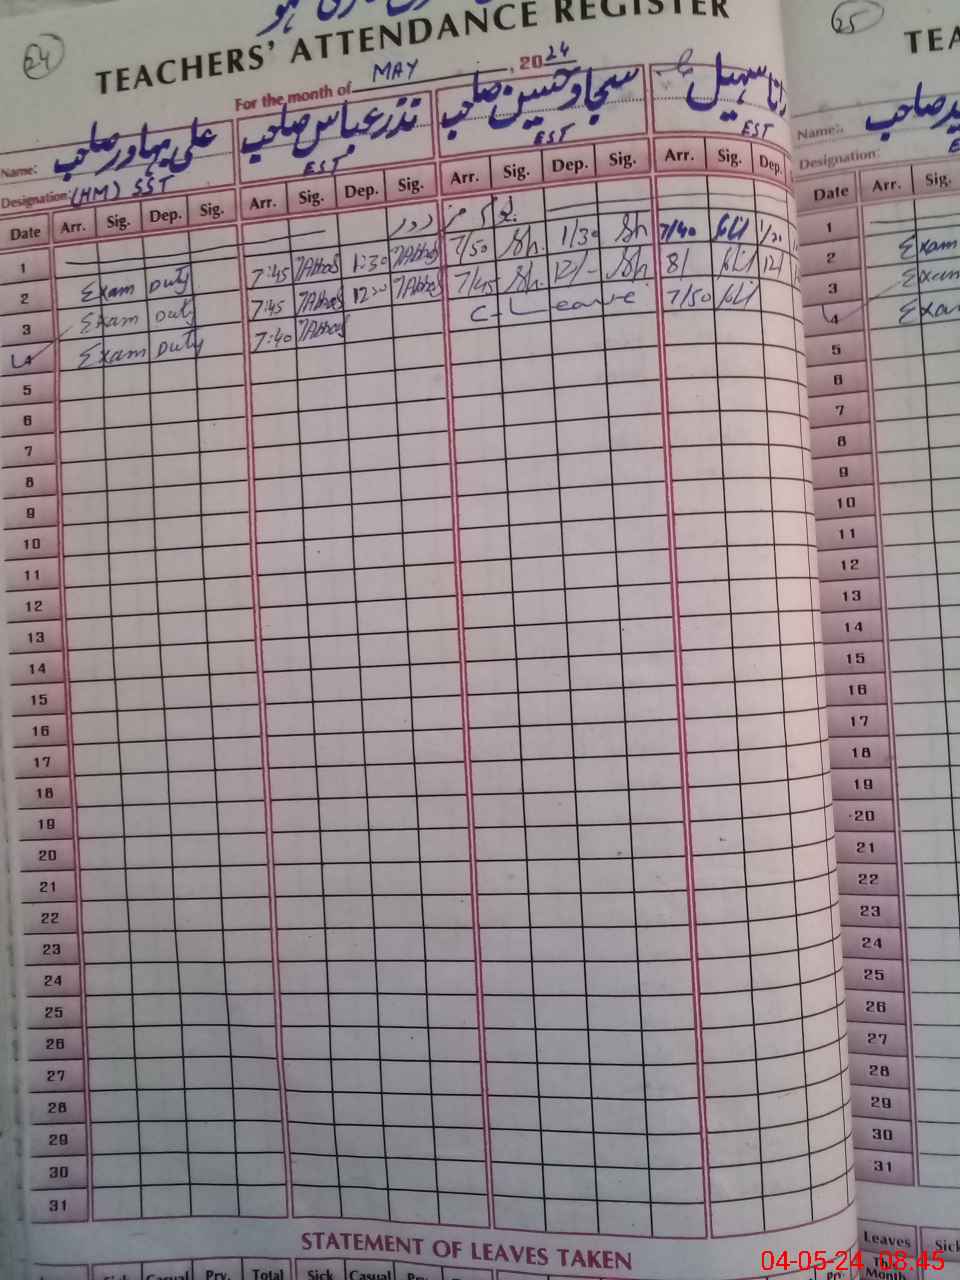 24
TEACHERS' ATTENDANCE REGISTER
For the month of MAY, 2024
Name: علی بہادر صاحب نذر عباس صاحب سجاد حسین صاحب رانا سہیل
Designation: (HM) SST EST EST EST
Date Arr. Sig. Dep. Sig. Arr. Sig. Dep. Sig. Arr. Sig. Dep. Sig. Arr. Sig. Dep.
1 یوم مزدور
2 Exam Duty 7:45 Abbas 1:30 Abbas 7/50 Sh. 1/30 Sh 7/40
3 Exam Duty 7:45 Abbas 1200 Abbas 7/45 Sh. 12/- Sh 8/ 12/
4 Exam Duty 7:40 Abbas C-Leave 7/50
5
6
7
8
9
10
11
12
13
14
15
16
17
18
19
20
21
22
23
24
25
26
27
28
29
30
31
STATEMENT OF LEAVES TAKEN
Sick Casual Prv. Total Sick Casual
25
TEA
Name:
صاحب
Designation:
Date Arr. Sig.
1
2 Exam
3 Exam
4 Exa
5
6
7
8
9
10
11
12
13
14
15
16
17
18
19
20
21
22
23
24
25
26
27
28
29
30
31
Leaves Sick
Month
04-05-24 08:45